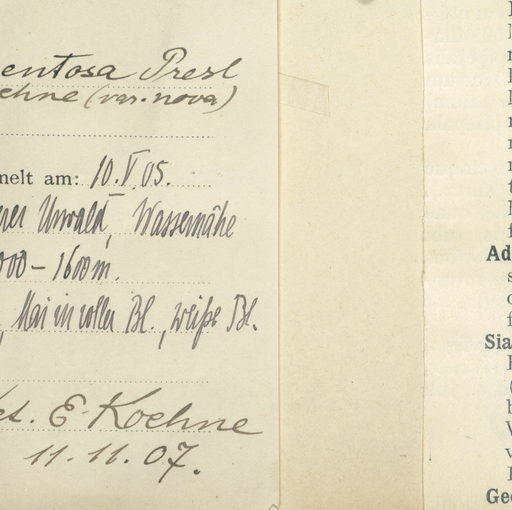 entosa Presl
ehne (var. nova)
melt am: 10.V.05.
Urwald, Wassernähe
000 - 1600 m.
, Mai in voller Bl., weiße Bl.
et. E. Koehne
11.11.07.
Ad
Sia
Geo